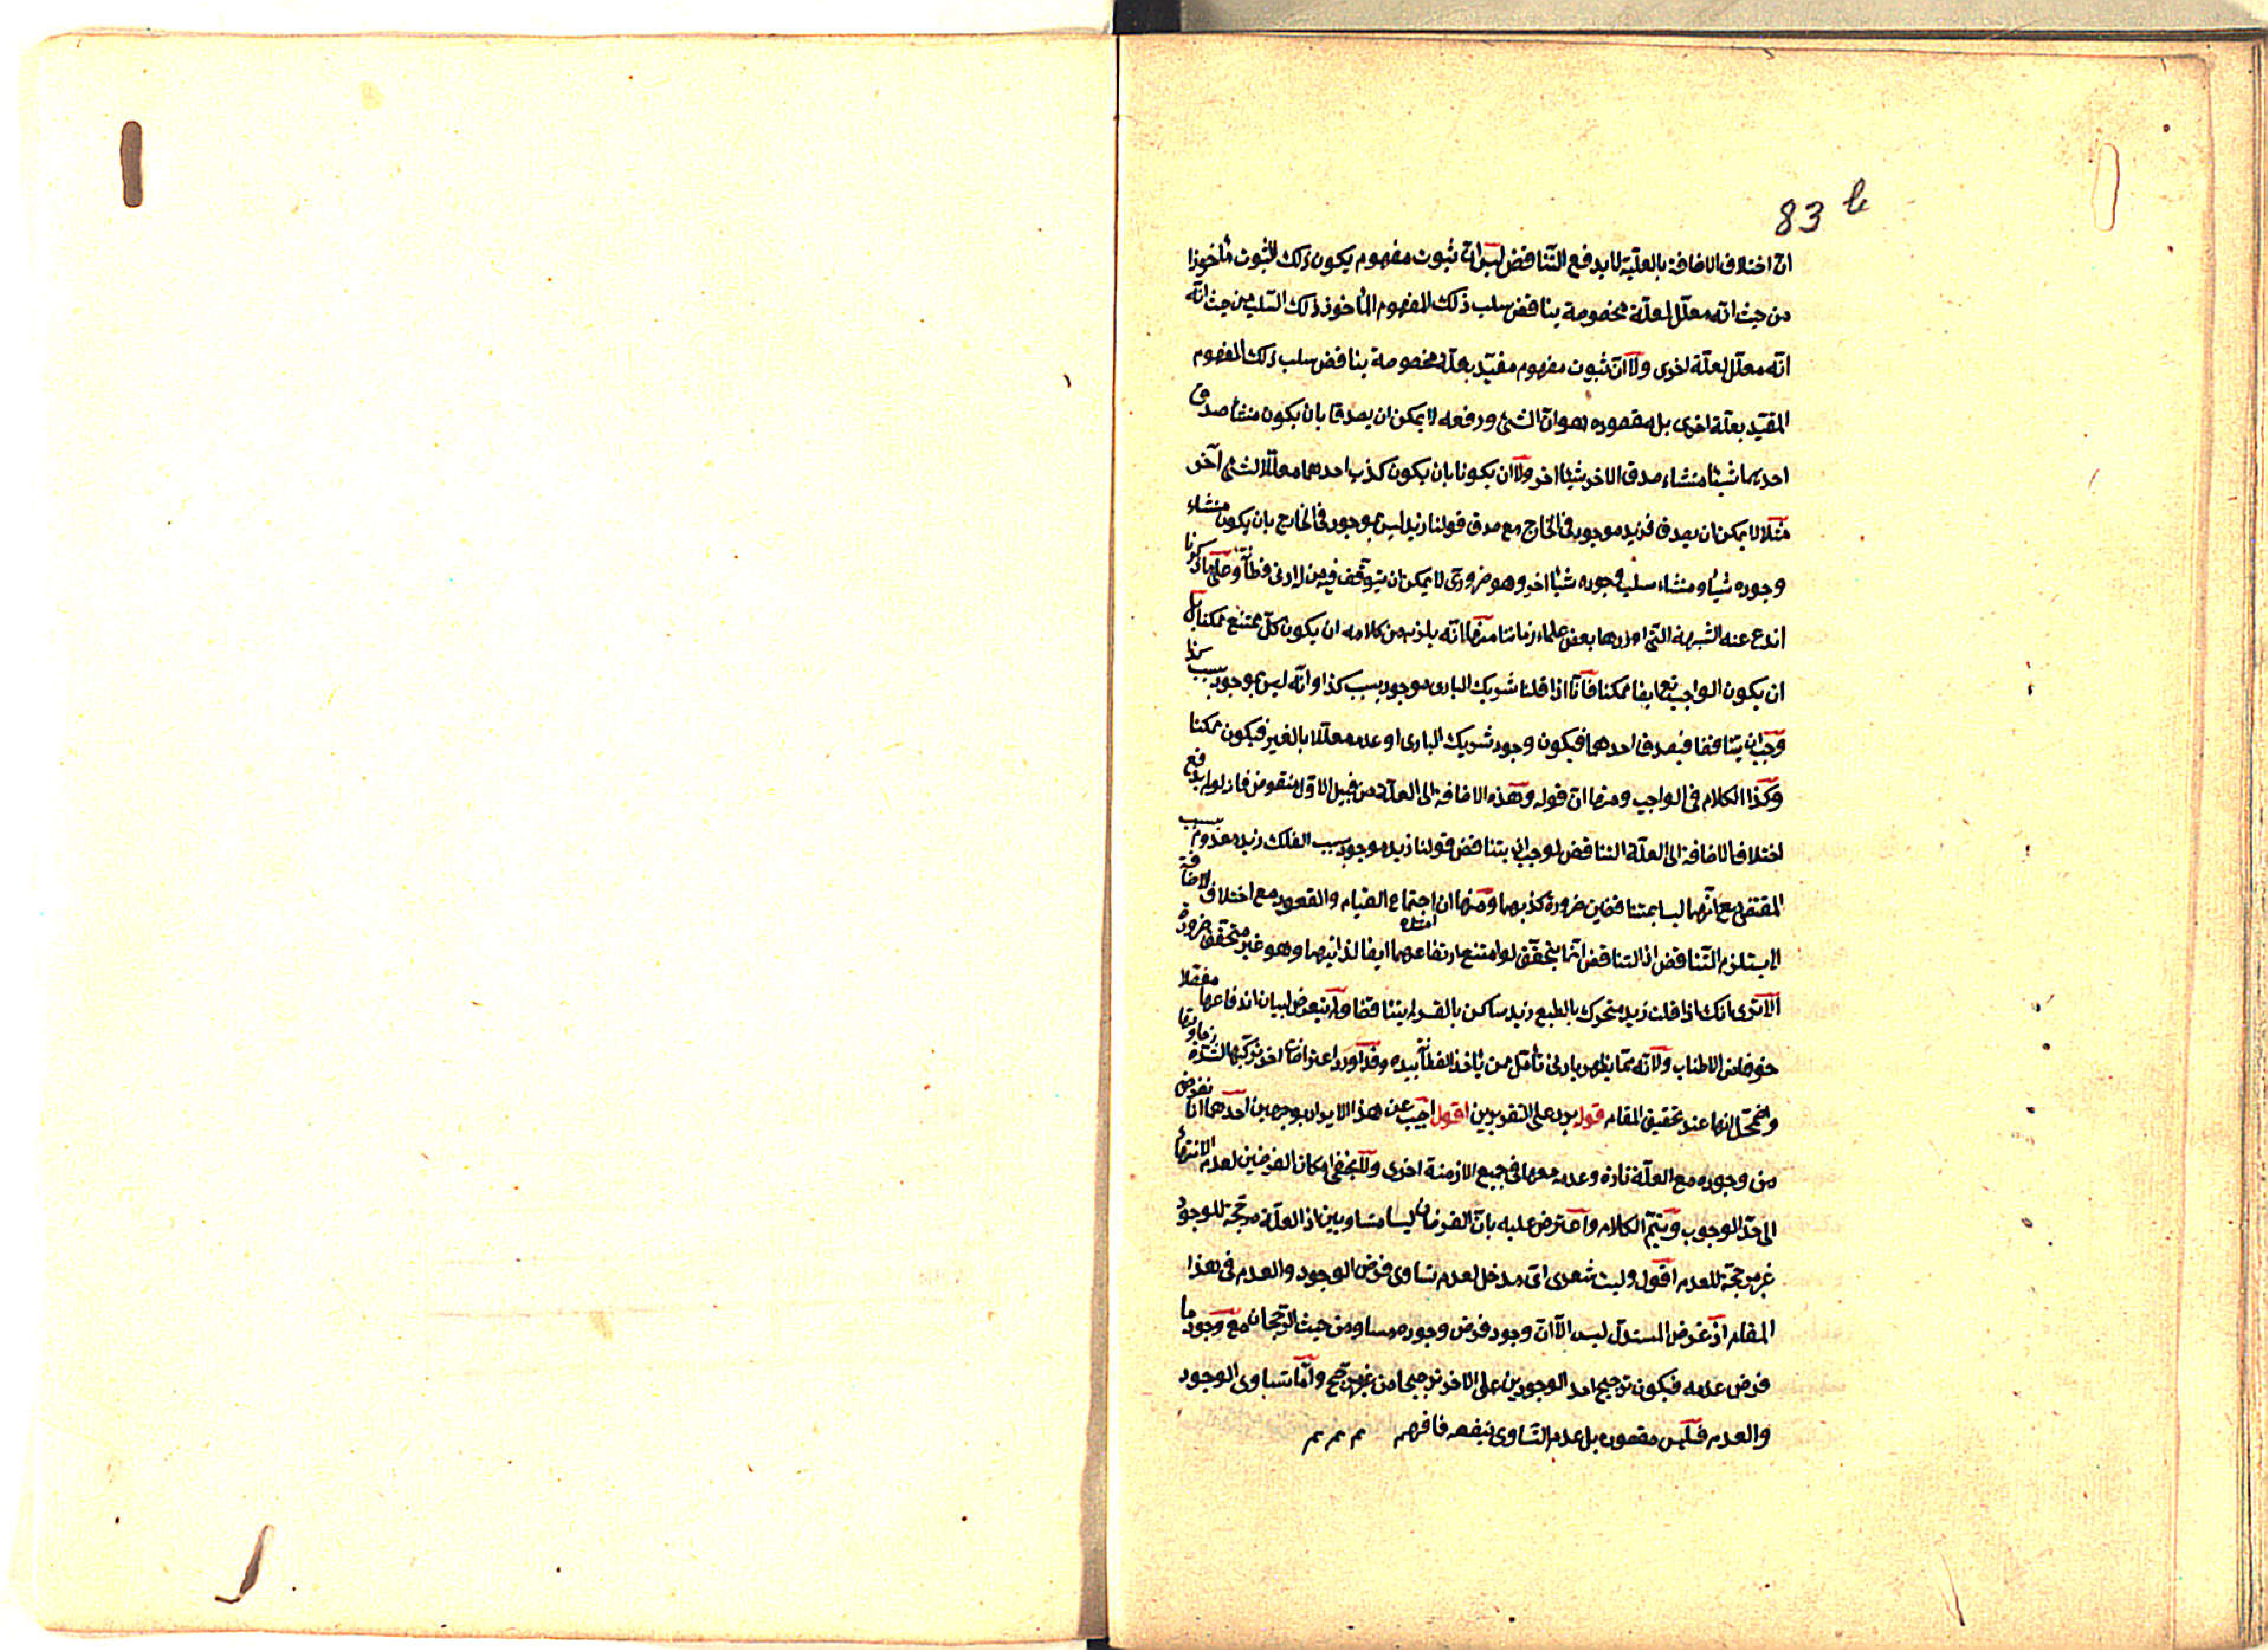 83 b
ان اختلاف الاضافة بالعلية لا يدفع التناقض ليس ان ثبوت مفهوم يكون ذلك الثبوت مأخوذا
من حيث انه معلل لعلة مخصوصة يناقض سلب ذلك المفهوم المأخوذ ذلك السلب من حيث انه
انه معلل لعلة اخرى ولا ان ثبوت مفهوم مقيد بعلة مخصوصة يناقض سلب ذلك المفهوم
المقيد بعلة اخرى بل مقصوده هو ان الشئ ورفعه لا يمكن ان يصدقا بان يكون منشأ صدق
احديهما شيئا منشاء صدق الاخر شيئا اخر ولا ان يكونا بان يكون كذب احدهما معللا لشئ آخر
مثلا لا يمكن ان يصدق فزيد موجود في الخارج مع صدق قولنا زيد ليس بموجود في الخارج بان يكون منشاء
وجوده شيئا ومنشاء سلب وجوده شيئا اخر وهو ضروري لا يمكن ان يتوقف فيه من له ادنى فطانة وعلى ما ذكرنا
اندفع عنه الشبهة التي اوردها بعض علماء زماننا منها انه يلزم من كلامه ان يكون كل ممتنع ممكنا بل
ان يكون الواجب تع ايضا ممكنا فانا اذا قلنا شريك البارى موجود بسبب كذا وانه ليس بموجود بسبب كذا
وجب ان يتناقضا فيصدق احدهما فيكون وجود شريك البارى او عدمه معللا بالغير فيكون ممكنا
وكذا الكلام في الواجب ومنها ان قوله وهذه الاضافة الى العلة من قبيل الاول منقوض فانه لو لم يدفع
اختلاف الاضافة الى العلة التناقض لوجب ان يتناقض قولنا زيد موجود بسبب الفلك زيد معدوم بسبب
المقتضى مع انهما ليسا بمتناقضين ضرورة كذبهما ومنها ان اجتماع القيام والقعود مع اختلاف الاضافة
لا يستلزم التناقض اذ التناقض انما يتحقق لو امتنع ارتفاعهما ايضا لذاتيهما وهو غير متحقق ضرورة
الا ترى انك اذا قلت زيد متحرك بالطبع زيد ساكن بالقسر لم يتناقضا ولم نتعرض لبيان اندفاعها مفصلا
خوفا من الاطناب ولانه مما يظهر بادنى تأمل من يأخذ الفطانة بيده وقد اورد اعتراضات اخر
واضمحلالها عند تحقيق المقام قوله يرد على التقديرين اقول اجيب عن هذا الايراد بوجهين احدهما انا نفرض
من وجوده مع العلة تارة وعدمه معها في جميع الازمنة اخرى ولا يخفى امكان الفرضين لعدم الانتهاء
الى حد الوجوب ويتم الكلام واعترض عليه بان الفرضان ليسا متساويين اذ العلة مرجحة للوجود
غير مرجحة للعدم اقول وليت شعرى اى مدخل لعدم تساوى فرض الوجود والعدم في هذا
المقام اذ غرض المستدل ليس الا ان وجود فرض وجوده مساو من حيث الرجحان مع وجود ما
فرض عدمه فيكون ترجيح احد الوجودين على الاخر ترجيحا من غير مرجح واما تساوى الوجود
والعدم فليس مقصوده بل عدم التساوى ينفعه فافهم